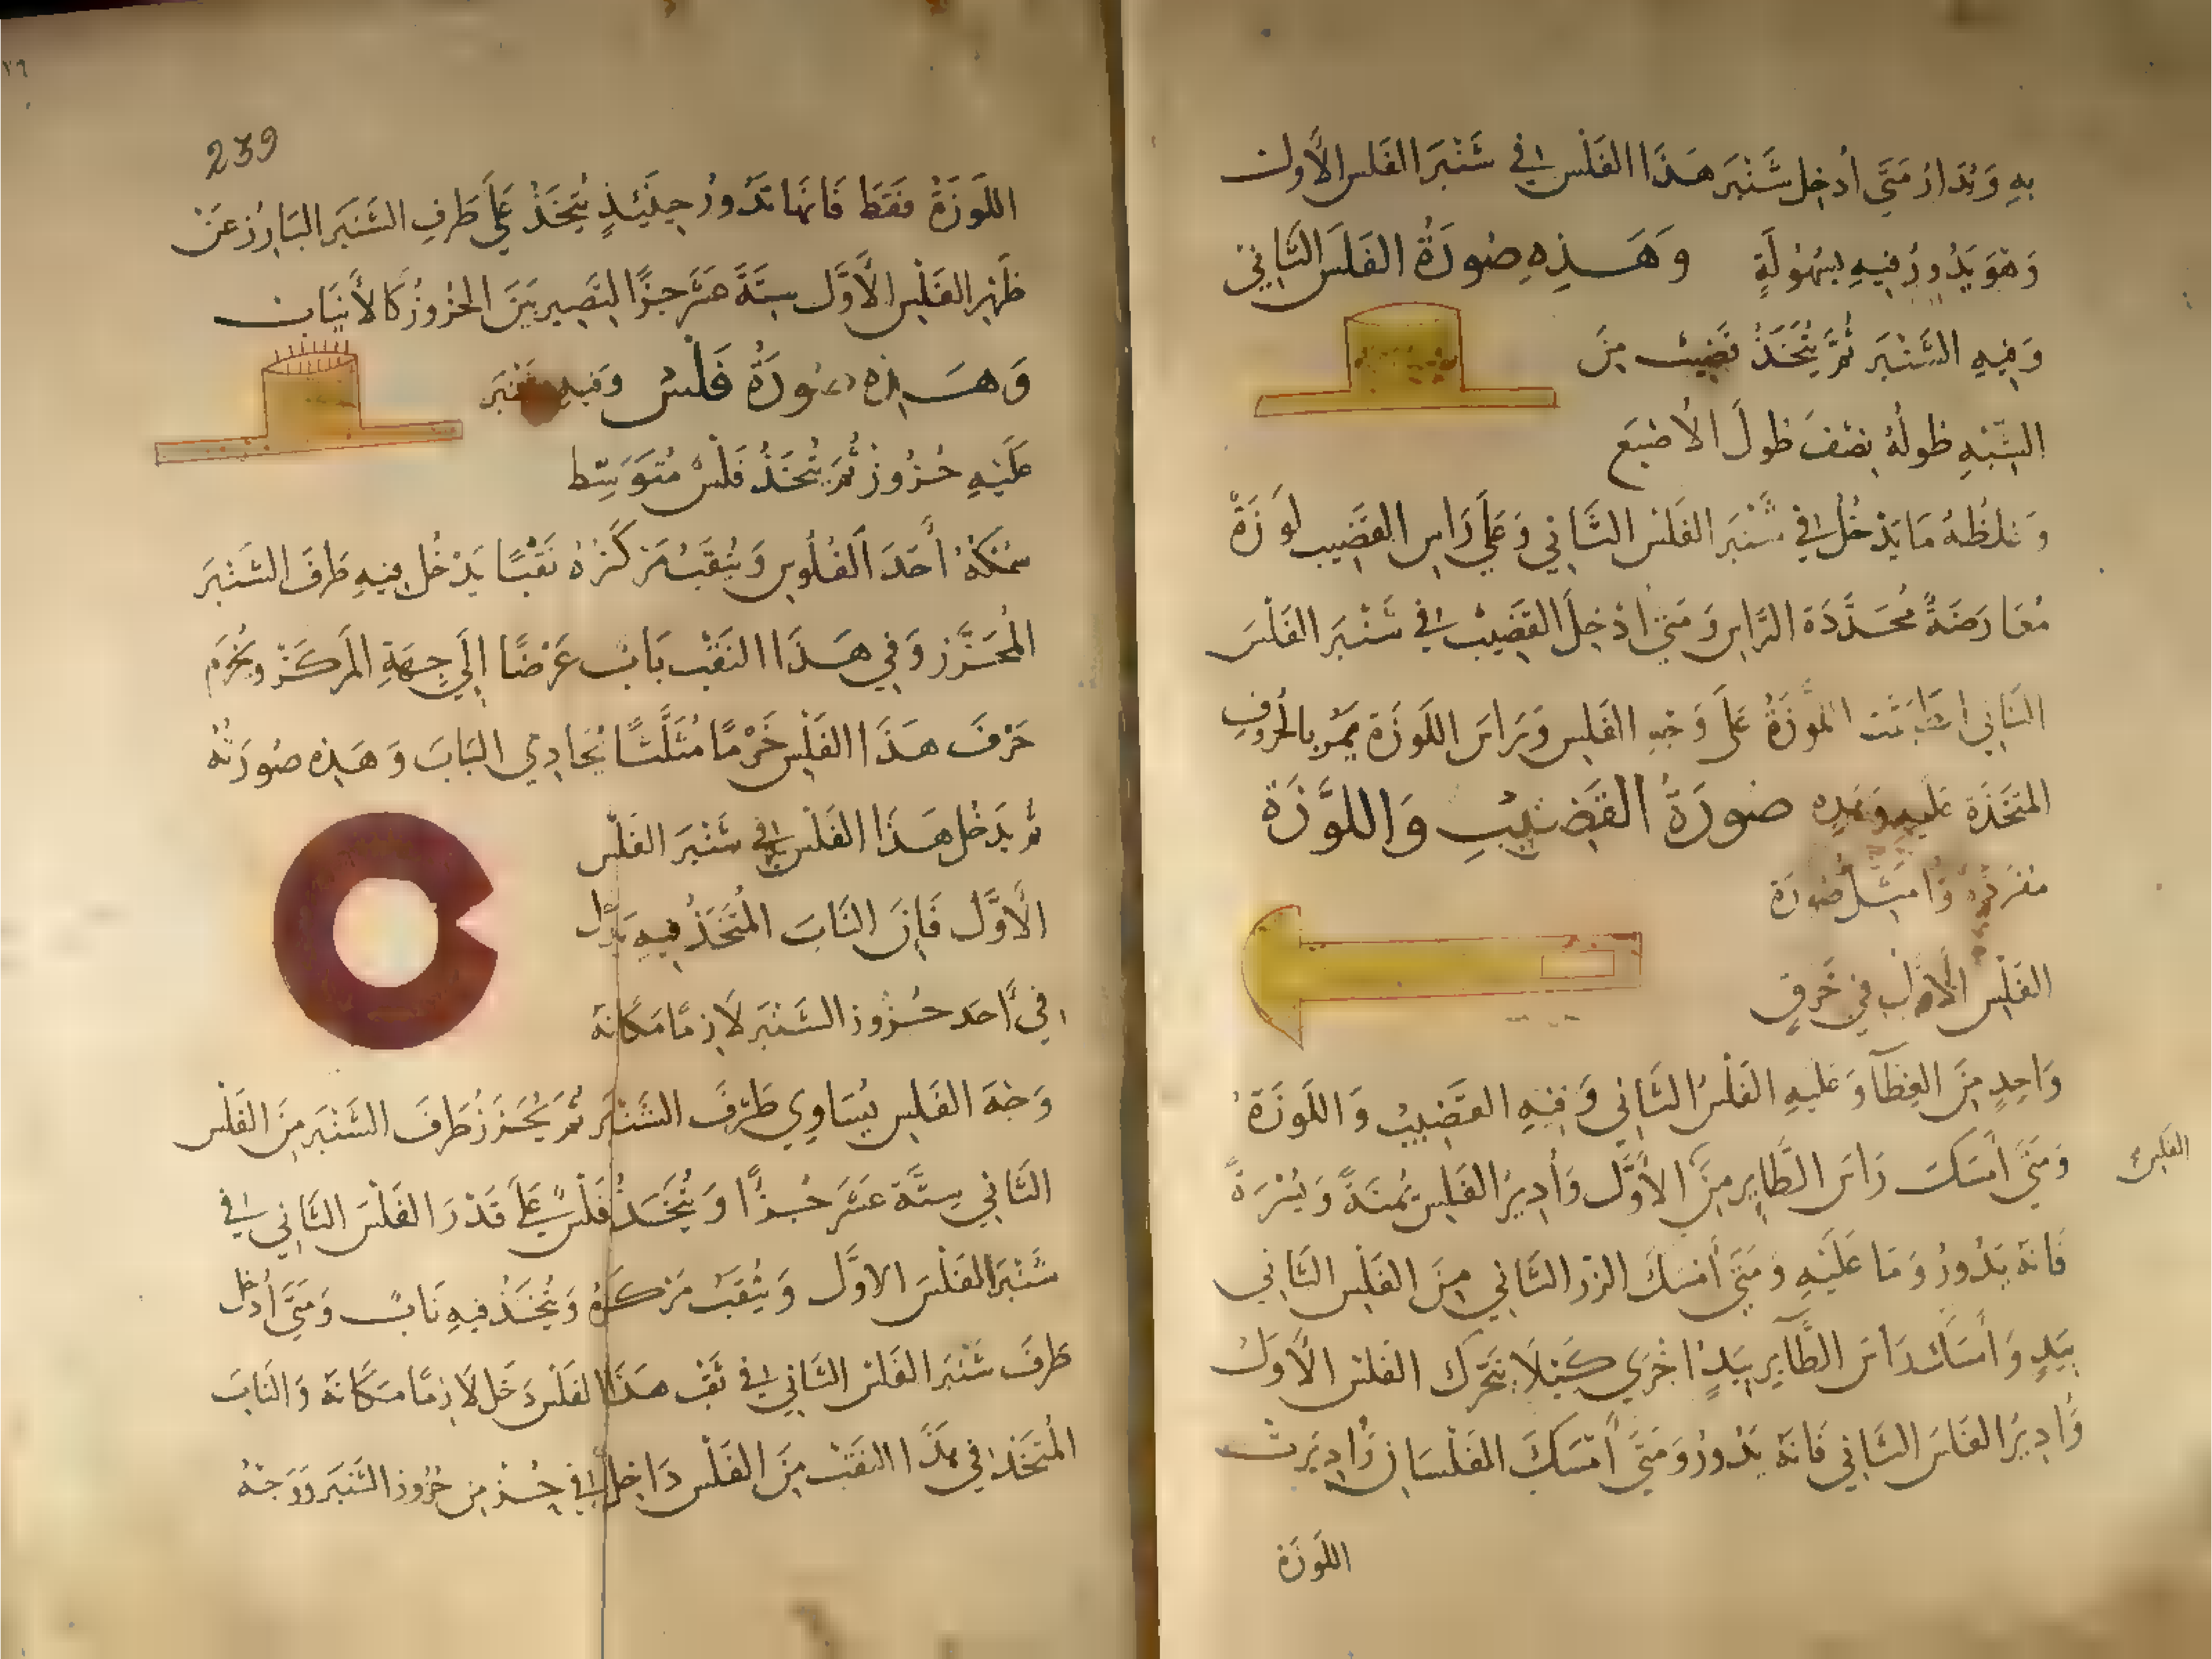 بِهِ وَيُدَارُ مَتَى أُدْخِلَ شَنْبَر هَذَا الفَلْس فِي شَنْبَر الفَلس الأَوَّل
وَهُوَ يَدُورُ فِيهِ بِسُهُولَةٍ وَهَذِهِ صُورَةُ الفَلَس الثَّانِي
وَفِيهِ الشَّنْبَر ثُمَّ يُتَّخَذُ قَضِيب مِنَ
الشَّبَهِ طُولُهُ نِصْفَ طُولَ الأُصْبَع
وَغِلَظُهُ مَا يَدْخُلُ فِي شَنْبَر الفَلْس الثَّانِي وَعَلَى رَاسِ القَضِيبِ لَوزَةٌ
مُعَارَضَةً مُحَدَّدَة الرَّاسِ وَمَتَى أُدْخِلَ القَضِيبُ فِي شَنْبَر الفَلْسَ
الثَّانِي انْطَبَقَت اللَّوزَةُ عَلَى وَجْهِ الفَلس وَرَاسَ اللَّوزَة يَمُرُّ بِالحُرُوفِ
المُتَّخَذَة عَلَيهِ وَهَذِهِ صُورَةُ القَضِيبِ وَاللَّوْزَة
مُفْرَدَةً وَأُمَثِّلُ صُورَة
الفَلْسِ الأَوَّل فِي خَرقٍ
وَاحِدٍ مِنَ الغِطَآ وَعَلَيهِ الفَلْسُ الثَّانِي وَفِيهِ القَضِيبُ وَاللَّوزَةُ
وَمَتَى أَمْسَكَ رَاسَ الطَّايِرِ مِنَ الأَوَّل وَأُدِيرُ الفَلس يُمْنَةً وَيُسْرَةً
الفلس
فَانَهُ يَدُورُ وَمَا عَلَيْهِ وَمَتَى أَمْسَكَ الزر الثَّانِي مِنَ الفَلْسِ الثَّانِي
بِيَدٍ وَأَمْسَكَ رَاسَ الطَّآيِرِ بِيَدٍ اُخْرَى كَيْلَا يَتَحَرَّك الفَلْس الأَوَّل
وَأُدِيرُ الفَلسَ الثَّانِي فَانَهُ يَدُورُ وَمَتَى أَمْسَكَ الفَلْسَانِ وَأُدِيَرت
اللَّوزَة
239
اللَّوزَةُ فَقَط فَانَهَا تَدُورُ حِينَئِذٍ يُتَّخَذُ عَلَى طَرفِ الشَّنْبَر البَارُز عَنْ
ظَهْر الفَلْس الأَوَّل سِتَّةَ عَشَر حزًّا لِتَصِير بَيْنَ الحُزُوز كَالأَنْيَاب
وَهَذِهِ صُورَةُ فَلْس وَفِيهِ شَنْبَر
عَلَيْهِ حُزُوز ثُمَّ يُتَّخَذُ فَلْسٌ مُتَوَسِّط
سُمْكَهُ أَحَدَ الفُلُوس وَيُثْقَبُ مَرْكَزُهُ ثَقْبًا يَدْخُل فِيهِ طَرَفَ الشَّنْبَر
المُحَزَّز وَفِي هَذَا الثَقْب نَابٌ عَرْضًا إِلَى جِهَةِ المَركَز ويُخْرَم
حَرْفَ هَذَا الفَلْس خَرْمًا مُثَلَّثًا يُحَاذِي النَابَ وَهَذِه صُورَتُهُ
ثُم يَدخُل هَذَا الفَلْس فِي شَنْبَر الفَلْس
الأَوَّل فَإِنَ النَابَ المُتَّخَذُ فِيهِ يَدخل
فِي أَحَد حُزُوز الشَّنْبَر لَازِمًا مَكَانَهُ
وَجْهَ الفَلس يُسَاوِي طَرَفَ الشَّنْبَر ثُمَّ يُحَزَّزُ طَرَفَ الشَّنْبَر مِنَ الفَلْس
الثَّانِي سِتَّةَ عَشَرَ حُزًّا وَيُتَّخَذُ فَلْسٌ عَلَى قَدْرَ الفَلْس الثَّانِي فِي
شَنْبَر الفَلْسَ الاوَّل وَيُثْقَبُ مَرْكَزُهُ وَيُتَّخَذُ فِيهِ نَابٌ وَمَتَى أُدخل
طَرفَ شَنْبَر الفَلْس الثَّانِي فِي ثَقْب هَذَا الفَلْس دَخَل لَازِمًا مَكَانَهُ وَالنَابَ
المُتَّخَذ فِي هَذَا الثَقْبْ مِنَ الفَلْس دَاخِل فِي حُزٍّ مِن حُزُوز الشَّنْبَر وَوَجْهُ